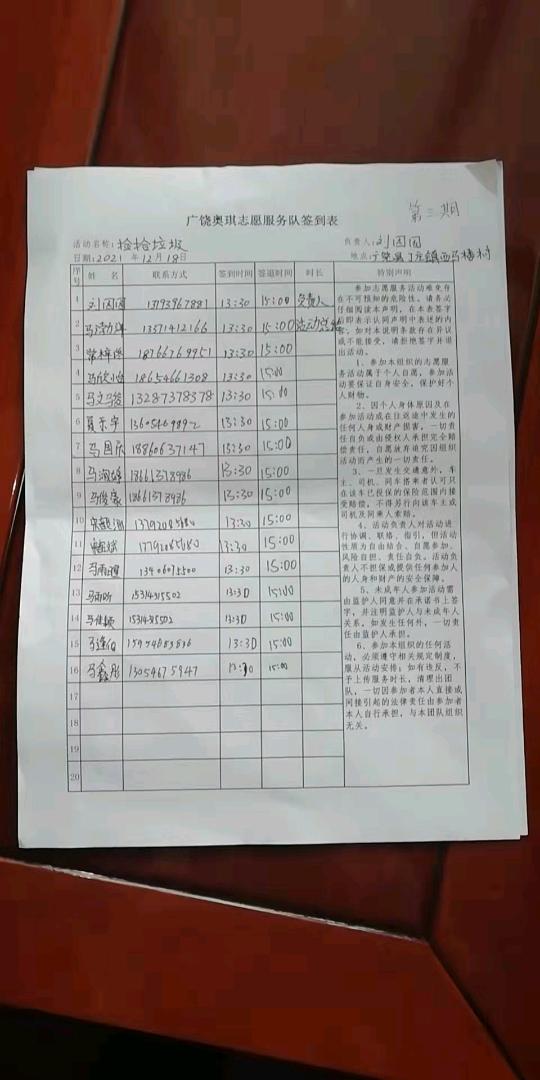 第三期
广饶奥琪志愿服务队签到表
活动名称：捡捡垃圾 负责人：刘囡囡
日期：2021 年 12 月 18 日 地点：广饶县丁庄镇西马楼村
序号 姓 名 联系方式 签到时间 签退时间 时长 特别声明
1 刘囡囡 13:30 15:00 负责人
2 13571412166 13:30 15:00
3 13:30 15:00
4 18654661308 13:30 15:00
5 马文骏 13287378378 13:30 15:00
6 聂东宇 13:30 15:00
7 马国庆 18860637147 13:30 15:00
8 18661378986 13:30 15:00
9 马俊豪 18661378986 13:30 15:00
10 13:30 15:00
11 13:30 15:00
12 13:30 15:00
13 13:30 15:00
14 13:30 15:00
15 13:30 15:00
16 马鑫彤 13054675947 13:30 15:00
17
18
19
20
参加志愿服务活动难免存
在不可预知的危险性。请务必
仔细阅读本声明，在本表签字
后即表示认同声明中表述的内
容。如对本说明条款存在异议
或不能接受，请拒绝签字并退
出活动。
1、参加本组织的志愿服
务活动属于个人自愿，参加活
动要保证自身安全，保护好个
人财物。
2、因个人身体原因及在
参加活动或在往返途中发生的
任何人身或财产损害，一切责
任自负或由侵权人承担完全赔
偿责任，自愿放弃追究因组织
活动而产生的一切责任。
3、一旦发生交通意外，车
主、司机、同车搭乘者认可只
在该车已投保的保险范围内接
受赔偿，不得另行向该车主或
司机及同乘人索赔。
4、活动负责人对活动进
行协调、联络、指引，但活动
性质为自由结合、自愿参加、
风险自担、责任自负。活动负
责人不担保或提供任何参加人
的人身和财产的安全保障。
5、未成年人参加活动需
由监护人同意并在承诺书上签
字，并注明监护人与未成年人
关系，如发生任何外，一切责
任由监护人承担。
6、参加本组织的任何活
动，必须遵守相关规定制度，
服从活动安排；如有违反，不
予上传服务时长，清理出团
队，一切因参加者本人直接或
间接引起的法律责任由参加者
本人自行承担，与本团队组织
无关。